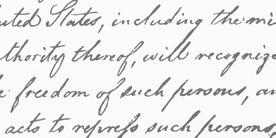 ited States, including the mi
thority thereof, will recognize
freedom of such persons, an
acts to repress such persons,